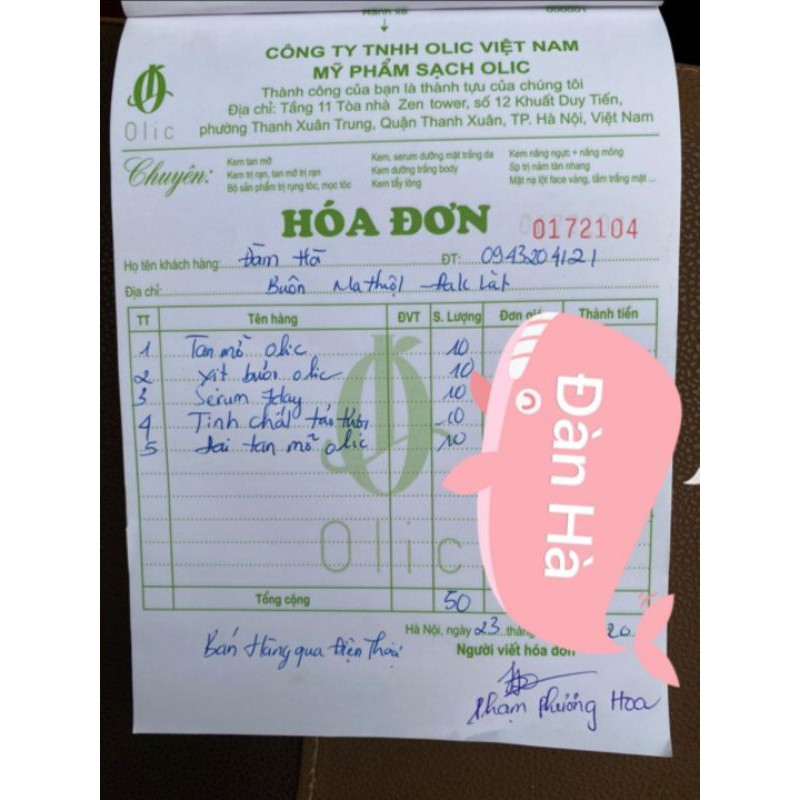 000001
CÔNG TY TNHH OLIC VIỆT NAM
MỸ PHẨM SẠCH OLIC
Thành công của bạn là thành tựu của chúng tôi
Địa chỉ: Tầng 11 Tòa nhà Zen tower, số 12 Khuất Duy Tiến,
phường Thanh Xuân Trung, Quận Thanh Xuân, TP. Hà Nội, Việt Nam
Olic
Chuyên:
Kem tan mỡ
Kem trị rạn, tan mỡ trị rạn
Bộ sản phẩm trị rụng tóc, mọc tóc
Kem, serum dưỡng mặt trắng da
Kem dưỡng trắng body
Kem tẩy lông
Kem nâng ngực + nâng mông
Sp trị nám tàn nhang
Mặt nạ lột face vàng, tắm trắng mặt ...
HÓA ĐƠN 0172104
Họ tên khách hàng: Đàm Hà ĐT: 0943204121
Địa chỉ: Buôn Ma thuột
TT Tên hàng ĐVT S. Lượng Đơn giá Thành tiền
1 Tan mỡ olic 10
2 Xịt bưởi olic 10
3 Serum 7day 10
4 Tinh chất 10
5 đai tan mỡ olic 10
Olic
Đàn Hà
Tổng cộng 50
Hà Nội, ngày 23 20
Bán Hàng qua Điện Thoại
Người viết hóa đơn
Phạm Phương Hoa